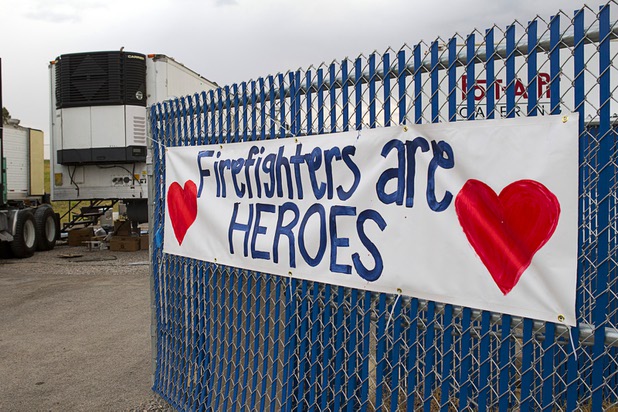 Firefighters are
HEROES